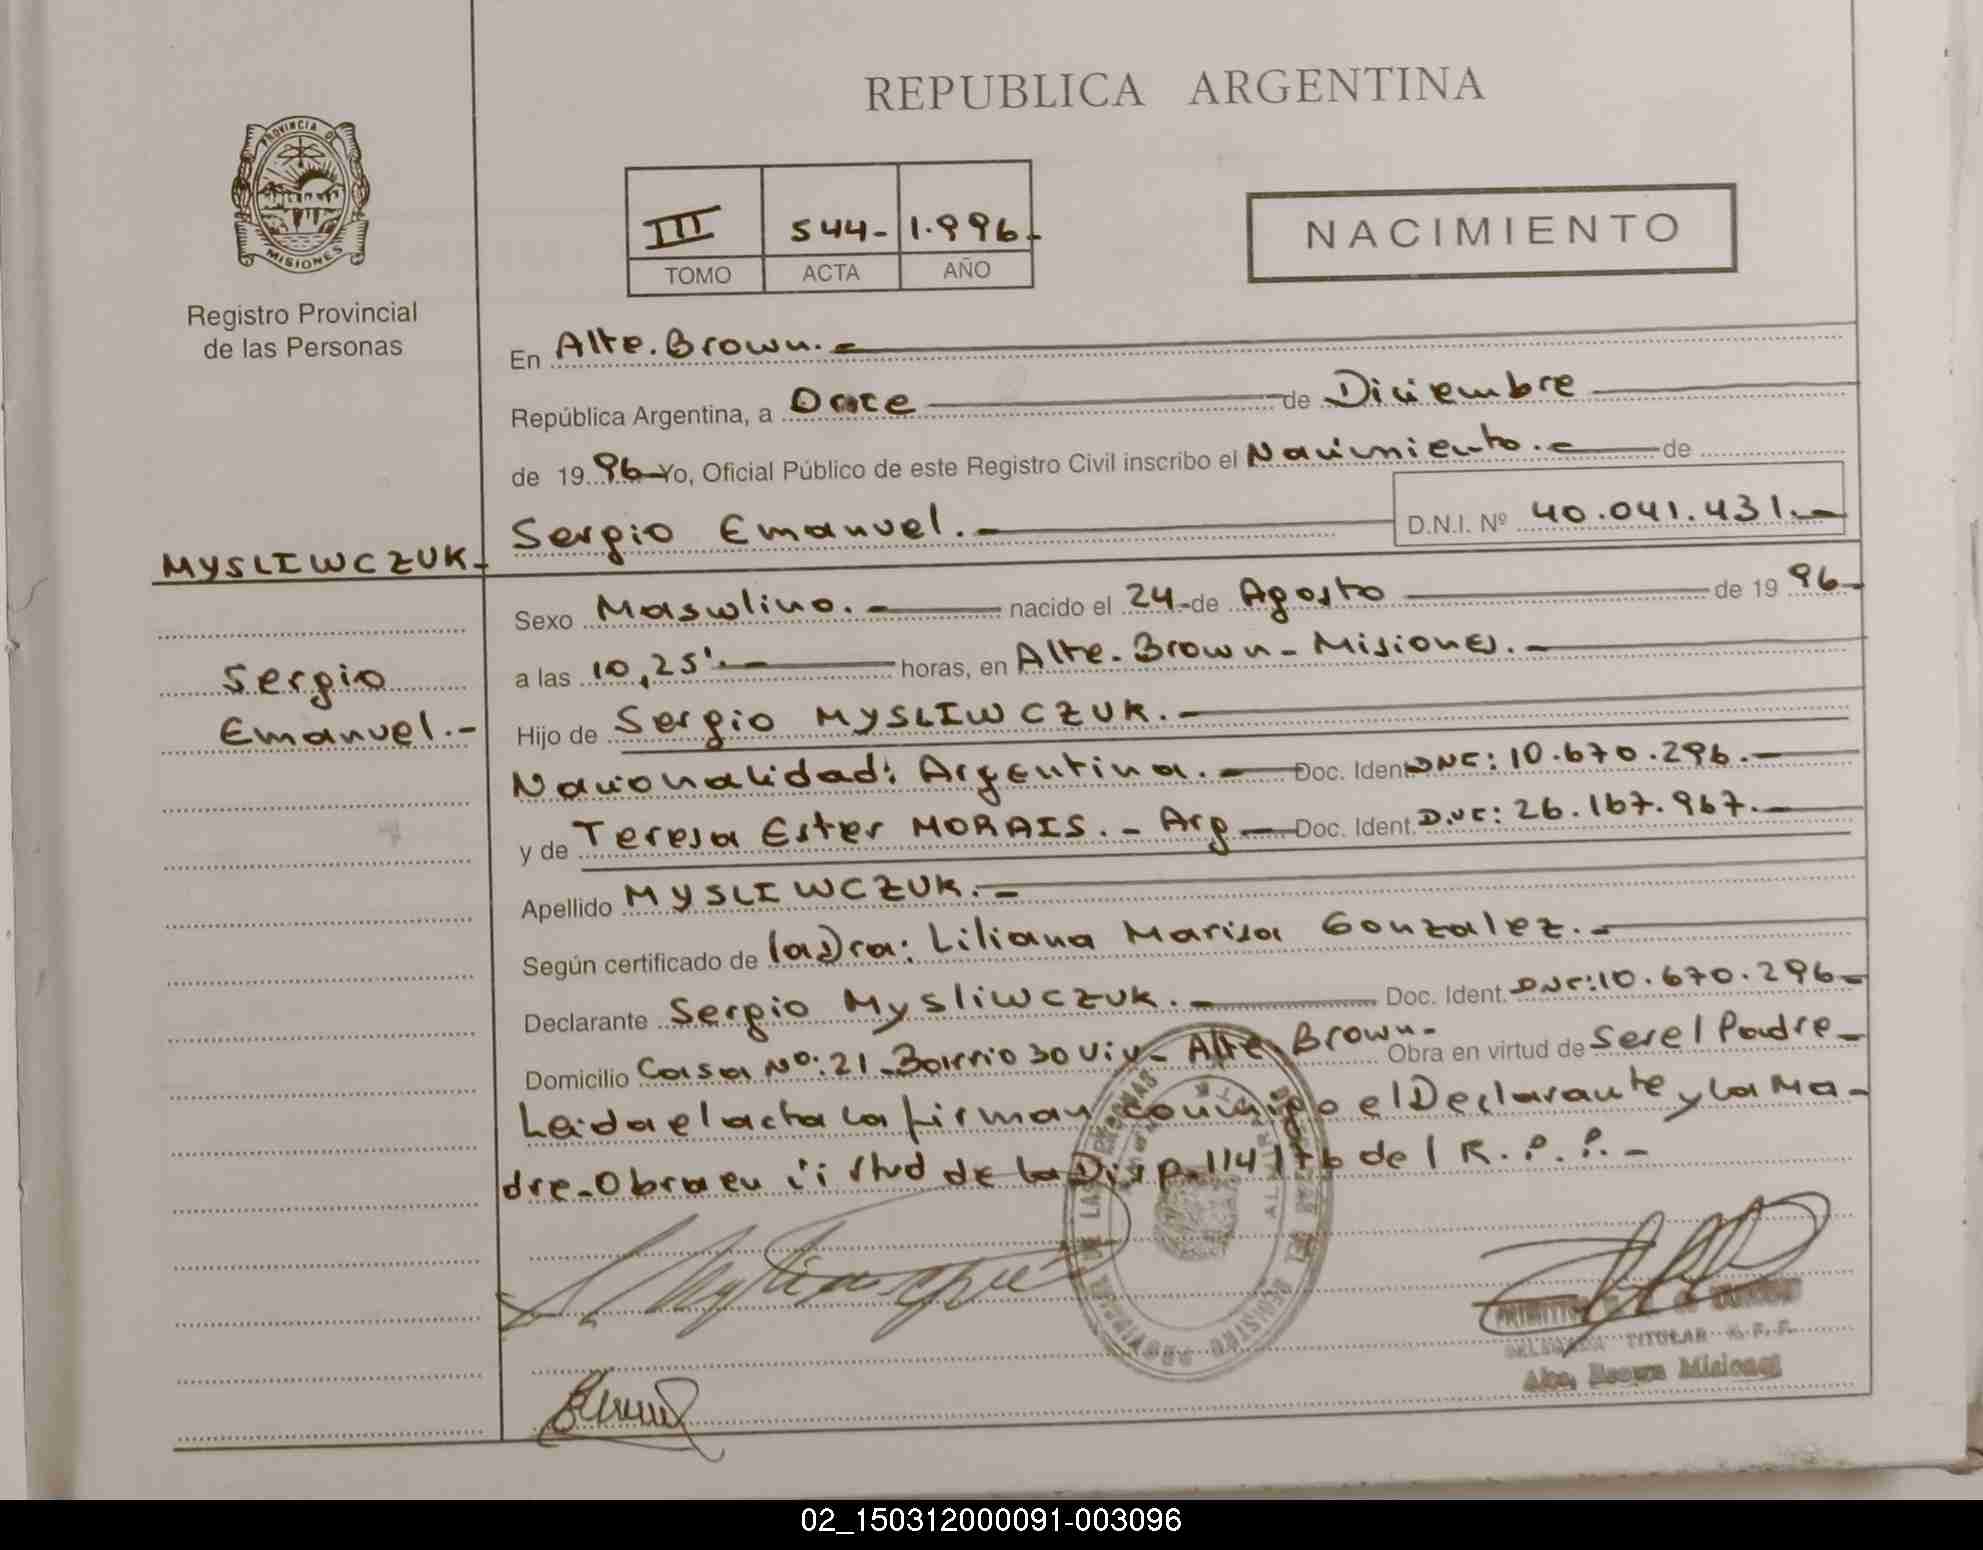 REPUBLICA ARGENTINA
PROVINCIA DE
MISIONES
Registro Provincial
de las Personas
III 544- 1.996-
TOMO ACTA AÑO
NACIMIENTO
En Alte. Brown.-
República Argentina, a Doce de Diciembre
de 1996 Yo, Oficial Público de este Registro Civil inscribo el Nacimiento.- de
Sergio Emanuel.- D.N.I. Nº 40.041.431.-
MYSLIWCZUK-
Sergio
Emanuel.-
Sexo Masculino.- nacido el 24-de Agosto de 1996-
a las 10,25'.- horas, en Alte. Brown - Misiones.-
Hijo de Sergio MYSLIWCZUK.-
Nacionalidad: Argentina.- Doc. Ident DNI: 10.670.296.-
y de Teresa Ester MORAIS.- Arg- Doc. Ident. DNI: 26.167.967.-
Apellido MYSLIWCZUK.-
Según certificado de la Dra: Liliana Marisa Gonzalez.-
Declarante Sergio Mysliwczuk.- Doc. Ident. DNI: 10.670.296-
Domicilio Casa Nº: 21 - Barrio 30 Viv - Alte. Brown- Obra en virtud de Ser el Padre-
Leida el acta la firman conmigo el Declarante y la Ma-
dre-Obra en virtud de la Disp. 114/76 del R.P.P.-
REGISTRO PROVINCIAL DE LAS PERSONAS
TITULAR R.P.P.
Alte. Brown Misiones
02_150312000091-003096